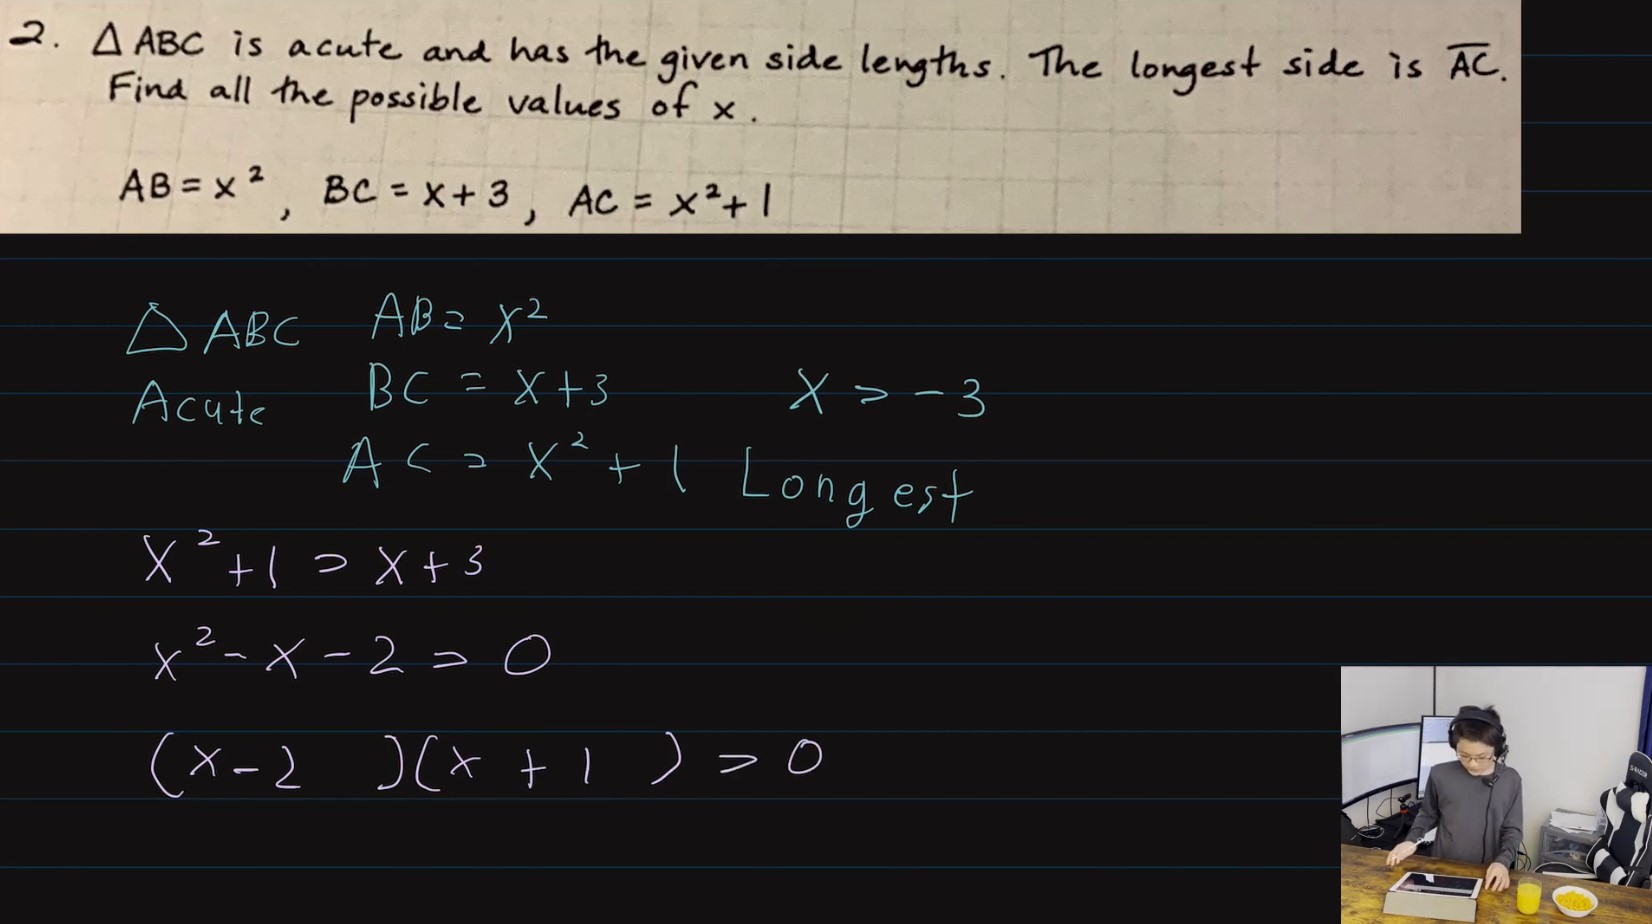 2. △ ABC is acute and has the given side lengths. The longest side is A̅C̅.
Find all the possible values of x.
AB = x², BC = x + 3, AC = x² + 1
△ ABC AB = x²
Acute BC = x + 3 x > -3
AC = x² + 1 Longest
x² + 1 > x + 3
x² - x - 2 > 0
(x - 2 )(x + 1 ) > 0